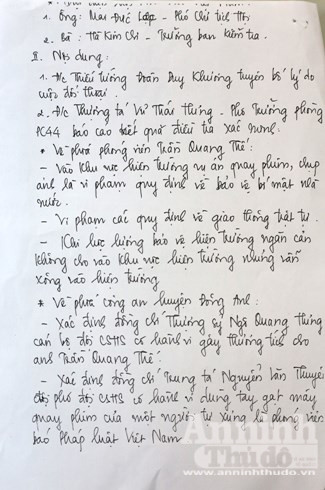 1. Ông: Mai Đức Lộc - Phó Chủ tịch Hội
2. Bà: Hà Kim Chi - Trưởng ban kiểm tra.
II. Nội dung:
1. Đ/c Thiếu tướng Đoàn Duy Khương tuyên bố lý do
cuộc đối thoại.
2. Đ/c Thượng tá Vũ Thái Hưng - Phó Trưởng phòng
PC44 báo cáo kết quả điều tra xác minh:
* Về phía phóng viên Trần Quang Thế:
- Vào khu vực hiện trường vụ án quay phim, chụp
ảnh là vi phạm quy định về bảo vệ bí mật nhà
nước.
- Vi phạm các quy định về giao thông trật tự.
- Khi lực lượng bảo vệ hiện trường ngăn cản
không cho vào khu vực hiện trường nhưng vẫn
xông vào hiện trường.
* Về phía công an huyện Đông Anh:
- Xác định đồng chí Thượng sỹ Ngô Quang Hưng
cán bộ đội CSHS có hành vi gây thương tích cho
anh Trần Quang Thế.
- Xác định đồng chí Trung tá Nguyễn Văn Thuyết
đội phó đội CSHS có hành vi dùng tay gạt máy
quay phim của một người tự xưng là phóng viên
báo Pháp luật Việt Nam
Anninh
Thủđô.vn
www.anninhthudo.vn